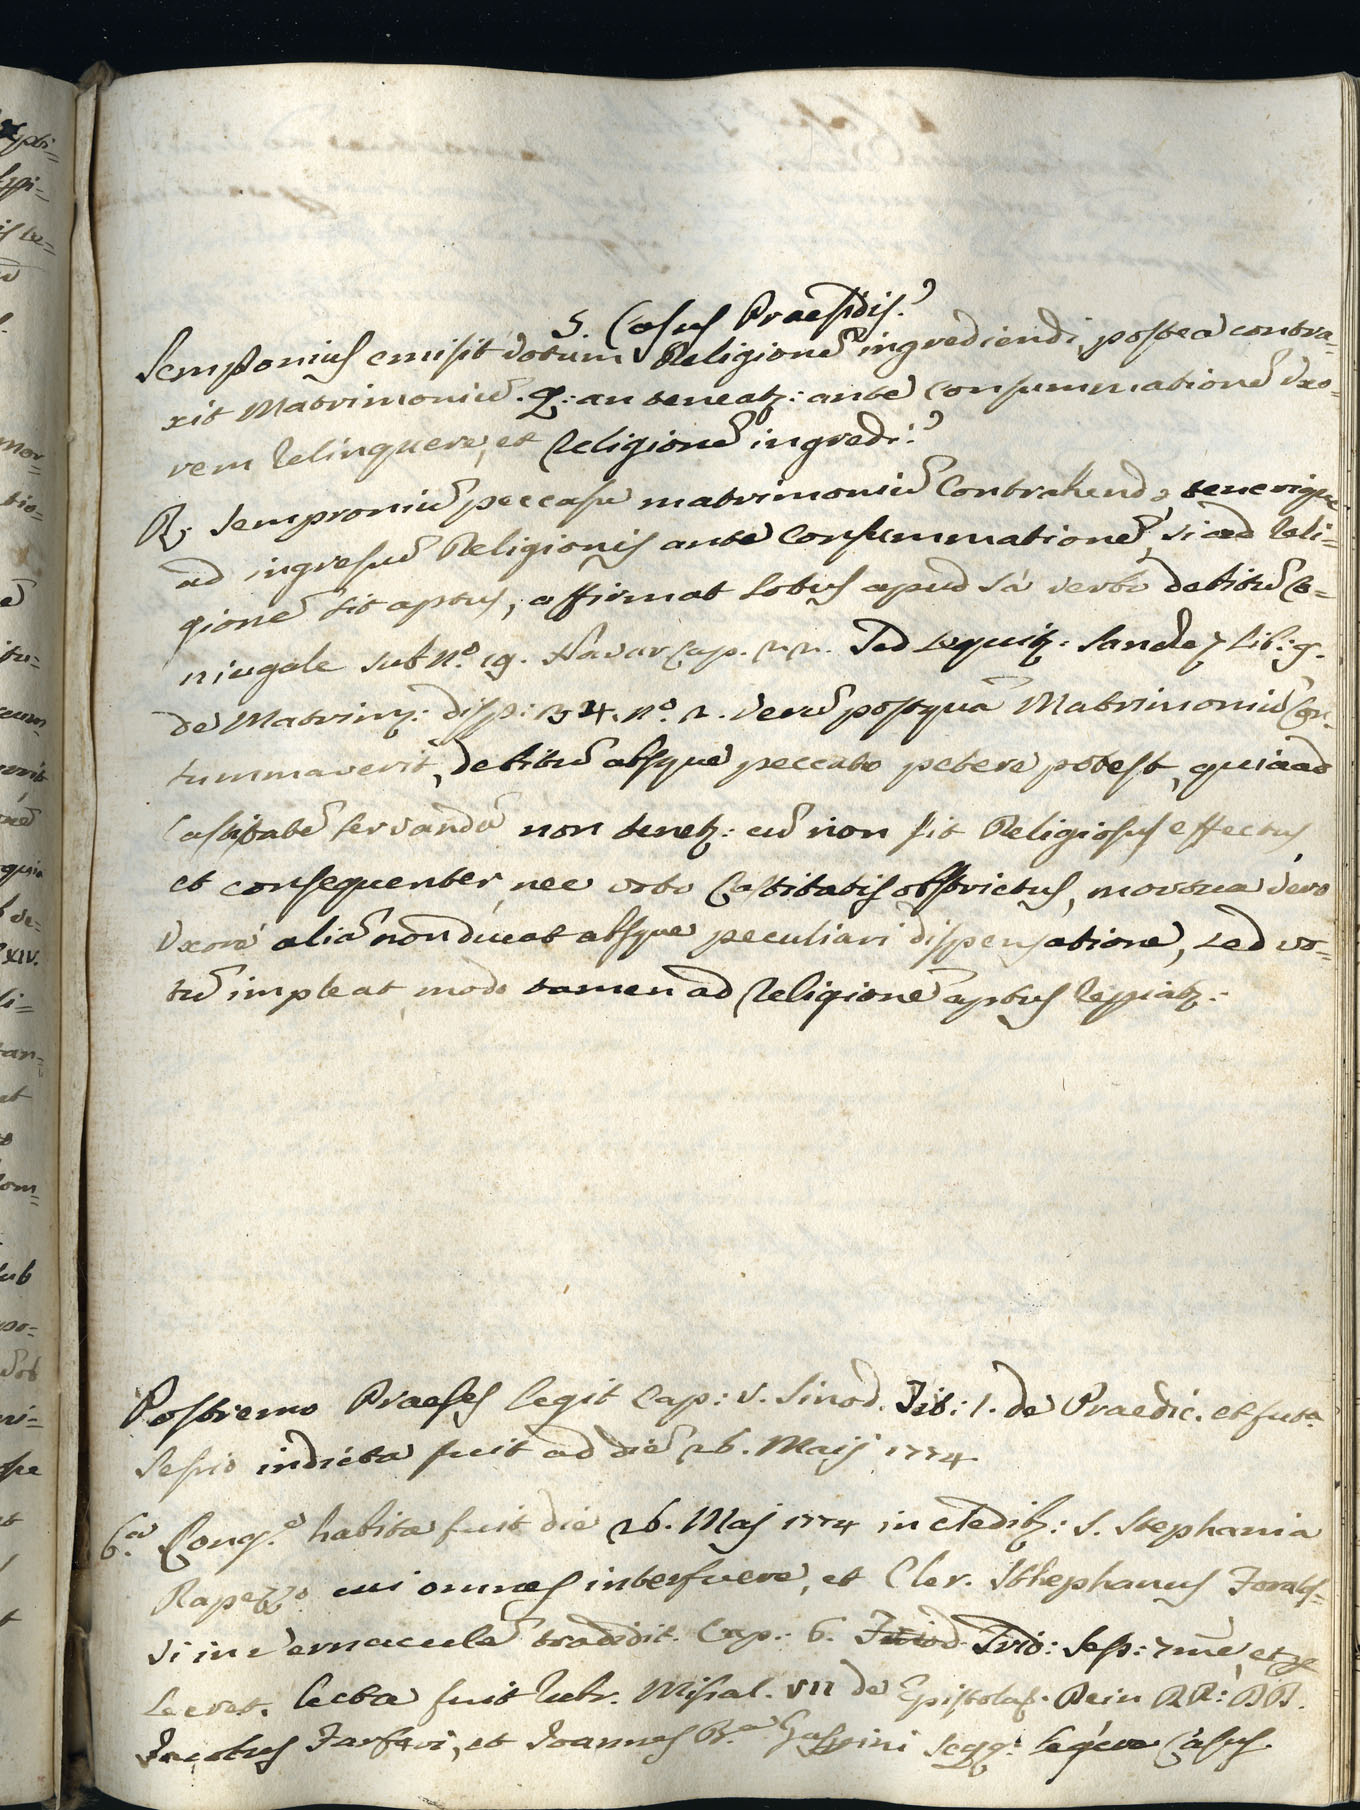 5. Casus Praesidis?
Sempronius emisit votum Religionē ingrediendi, postea contra=
xit Matrimoniū. Q: an teneatz: ante consummationē Uxo=
rem relinquere, et Religionē ingredi?
R: Semproniū peccasse matrimoniū contrahendo, tenerique
ad ingressū Religionis ante Consummationē, si ad Reli=
gionē sit aptus, affirmat Sotus apud Sà verbo debitū Co=
niugale sub n.º 19. Navar Cap. 22. Sed sequitz: Sanchez Lib: 9.
de Matrimz: disp: n.º 2. verū postquā Matrimoniū Con=
summaverit, debitū absque peccato petere potest, quia ad
Castitatē servandā non tenetz: cū non sit Religiosus effectus,
et consequenter, nec voto Castitatis obstrictus, mortua vero
Uxore aliā non ducat absque peculiari dispensatione, sed vo=
tū impleat, modo tamen ad Religionē aptus repiatz:
Postremo Praeses legit Cap: V. Sinod. Tit: 1. de Praedic. et futa
Sessio indicta fuit ad diē 26. Maij 1774
6.a Cong.e habita fuit die 26. Maj 1774 in Aedibz: S. Stephani a
Rapezzo cui omnes interfuere, et Cler. Sthephanus
in vernaculē tradidit. Cap: 6. Trid: Sess: 7mē et
lecta fuit Rubr. Missal. VII de Epistolas. Dein RR: DD.
Jacobus et Joannes B.a Gaspini legere Casus.